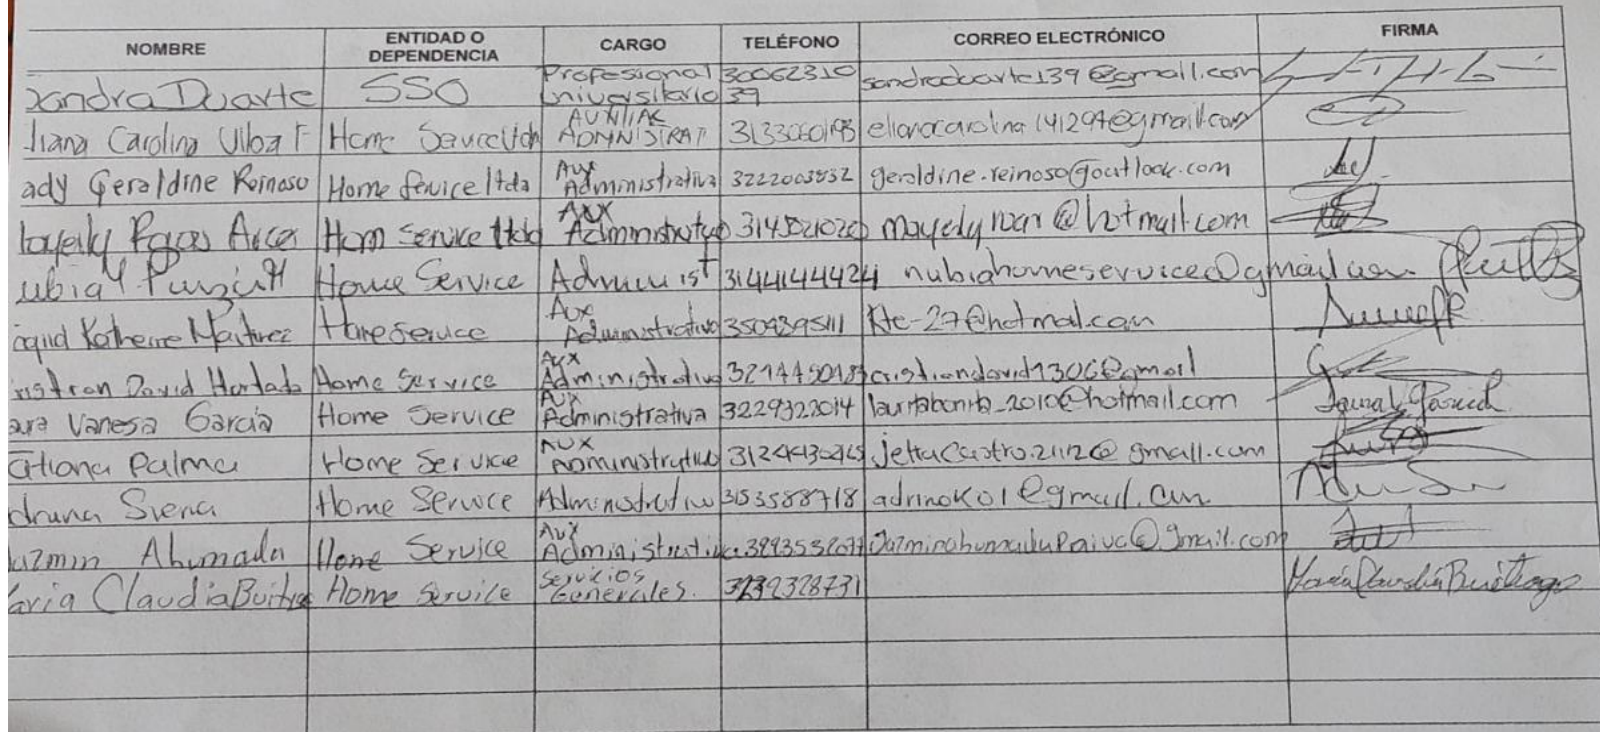 NOMBRE ENTIDAD O DEPENDENCIA CARGO TELÉFONO CORREO ELECTRÓNICO FIRMA
Sandra Duarte SSO Profesional Universitario 3006231039 sandraduarte139@gmail.com
liana Carolina Ulloa F Home Service ltda AUXILIAR ADMINISTRAT elianacarolina141297@gmail.com
ady Geraldine Reinoso Home Service ltda Aux Administrativa 3222003832 geraldine.reinoso@outlook.com
Hom Service ltda Aux Administrativo @hotmail.com
ubia Home Service Administ 3144144424 nubiahomeservice@gmail.com
Katherine Martinez Home Service Aux Administrativo kte-27@hotmail.com
ristian David Hurtado Home Service Aux Administrativo cristiandavid1306@gmail
aura Vanesa García Home Service Aux Administrativa 3229322014 lauritabonita_2010@hotmail.com Laura V García
atiana Palma Home Service Aux Administrativo @gmail.com
driana Sierra Home Service Administrativo 3153588718 adrinok01@gmail.com
azmin Ahumada Home Service Aux Administrativa @gmail.com
aria Claudia Buitrago Home Service Servicios Generales. María Claudia Buitrago